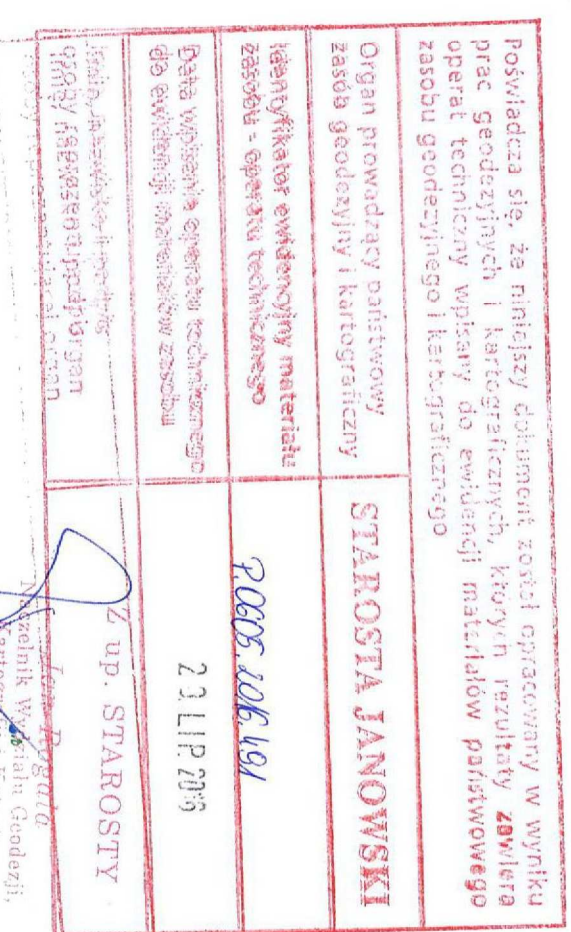 Poświadcza się, że niniejszy dokument został opracowany w wyniku
prac geodezyjnych i kartograficznych, których rezultaty zawiera
operat techniczny wpisany do ewidencji materiałów państwowego
zasobu geodezyjnego i kartograficznego
Organ prowadzący państwowy
zasób geodezyjny i kartograficzny
STAROSTA JANOWSKI
Identyfikator ewidencyjny materiału
zasobu - operatu technicznego
P.0605.2016.491
Data wpisania operatu technicznego
do ewidencji materiałów zasobu
LIP. 2016
Imię, nazwisko i podpis
osoby reprezentującej organ
Z up. STAROSTY
Naczelnik Wydziału Geodezji,